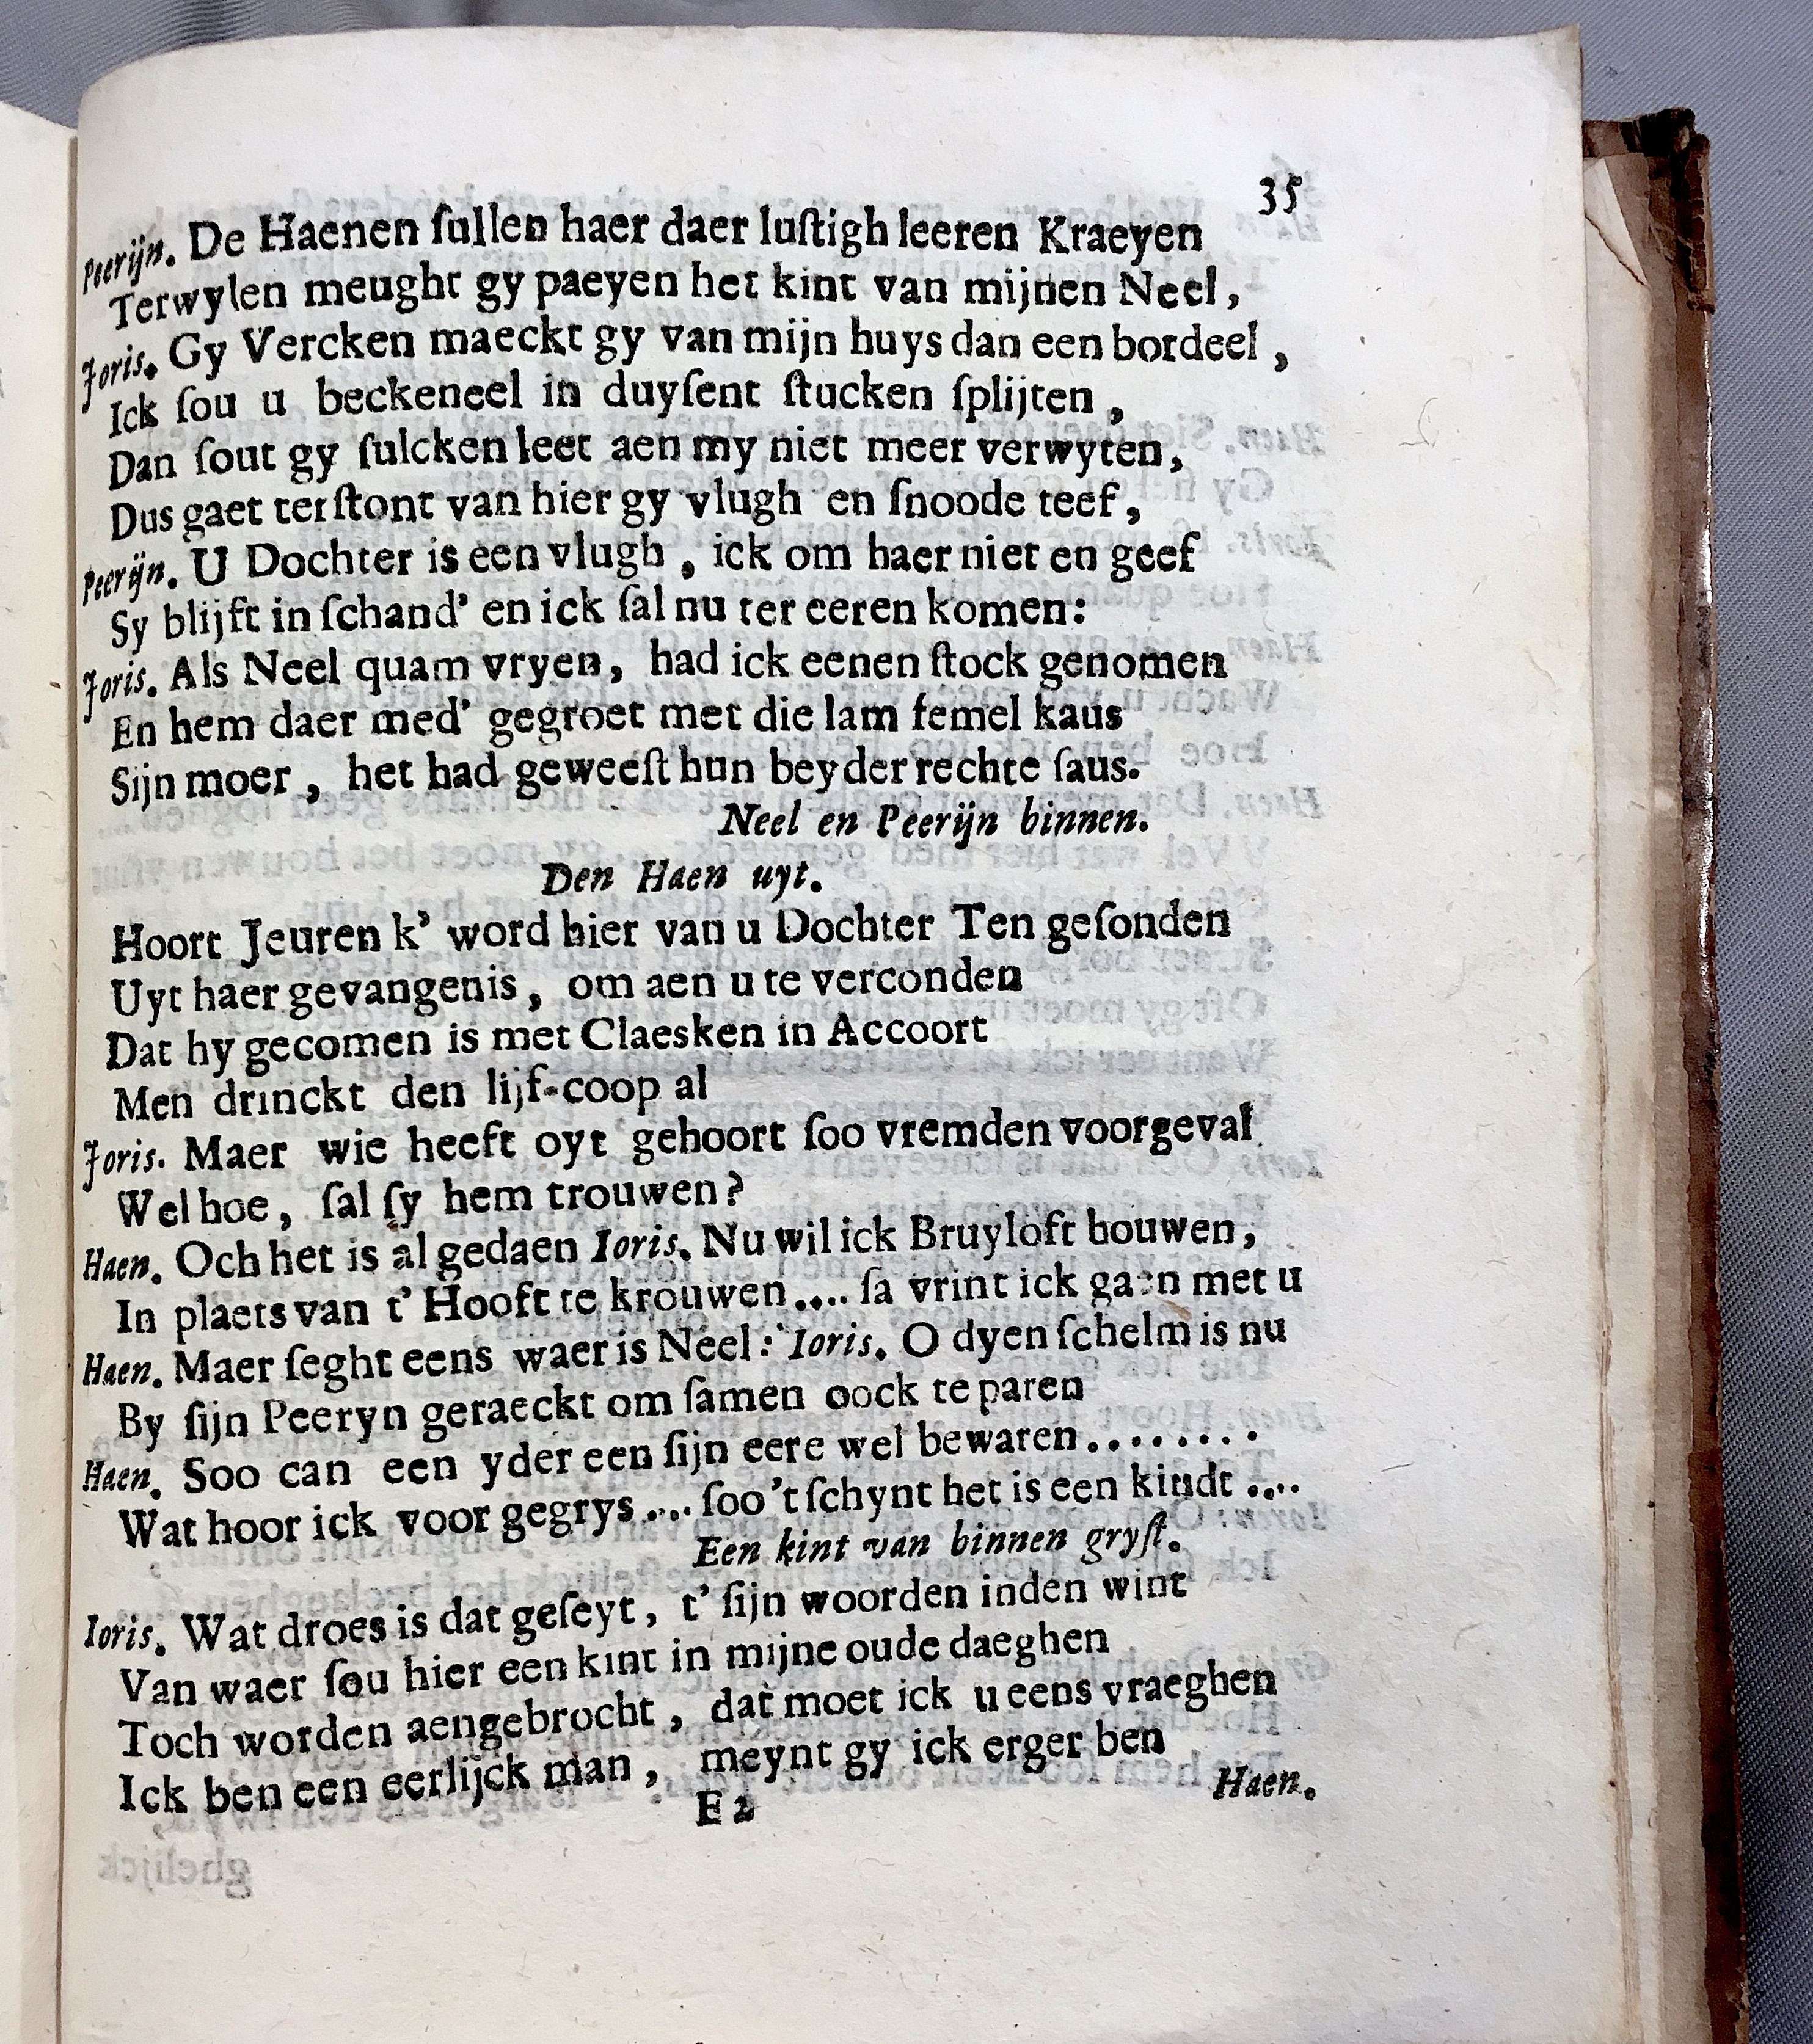 35
Peerijn. De Haenen ſullen haer daer luſtigh leeren Kraeyen
Terwylen meught gy paeyen het kint van mijnen Neel,
Joris. Gy Vercken maeckt gy van mijn huys dan een bordeel,
Ick ſou u beckeneel in duyſent ſtucken ſplijten,
Dan ſout gy ſulcken leet aen my niet meer verwyten,
Dus gaet terſtont van hier gy vlugh en ſnoode teef,
Peerijn. U Dochter is een vlugh, ick om haer niet en geef
Sy blijft in ſchand' en ick ſal nu ter eeren komen:
Joris. Als Neel quam vryen, had ick eenen ſtock genomen
En hem daer med' gegroet met die lam femel kaus
Sijn moer, het had geweeſt hun beyder rechte ſaus.
Neel en Peerijn binnen.
Den Haen uyt.
Hoort Jeuren k' word hier van u Dochter Ten geſonden
Uyt haer gevangenis, om aen u te verconden
Dat hy gecomen is met Claesken in Accoort
Men drinckt den lijf-coop al
Joris. Maer wie heeft oyt gehoort ſoo vremden voorgeval
Wel hoe, ſal ſy hem trouwen?
Haen. Och het is al gedaen Ioris. Nu wil ick Bruyloft houwen,
In plaets van t' Hooft te krouwen.... ſa vrint ick gaen met u
Haen. Maer ſeght eens waer is Neel: Ioris. O dyen ſchelm is nu
By ſijn Peeryn geraeckt om ſamen oock te paren
Haen. Soo can een yder een ſijn eere wel bewaren........
Wat hoor ick voor gegrys.... ſoo't ſchynt het is een kindt....
Een kint van binnen gryſt.
Ioris. Wat droes is dat geſeyt, t' ſijn woorden inden wint
Van waer ſou hier een kint in mijne oude daeghen
Toch worden aengebrocht, dat moet ick u eens vraeghen
Ick ben een eerlijck man, meynt gy ick erger ben
E 2
Haen.